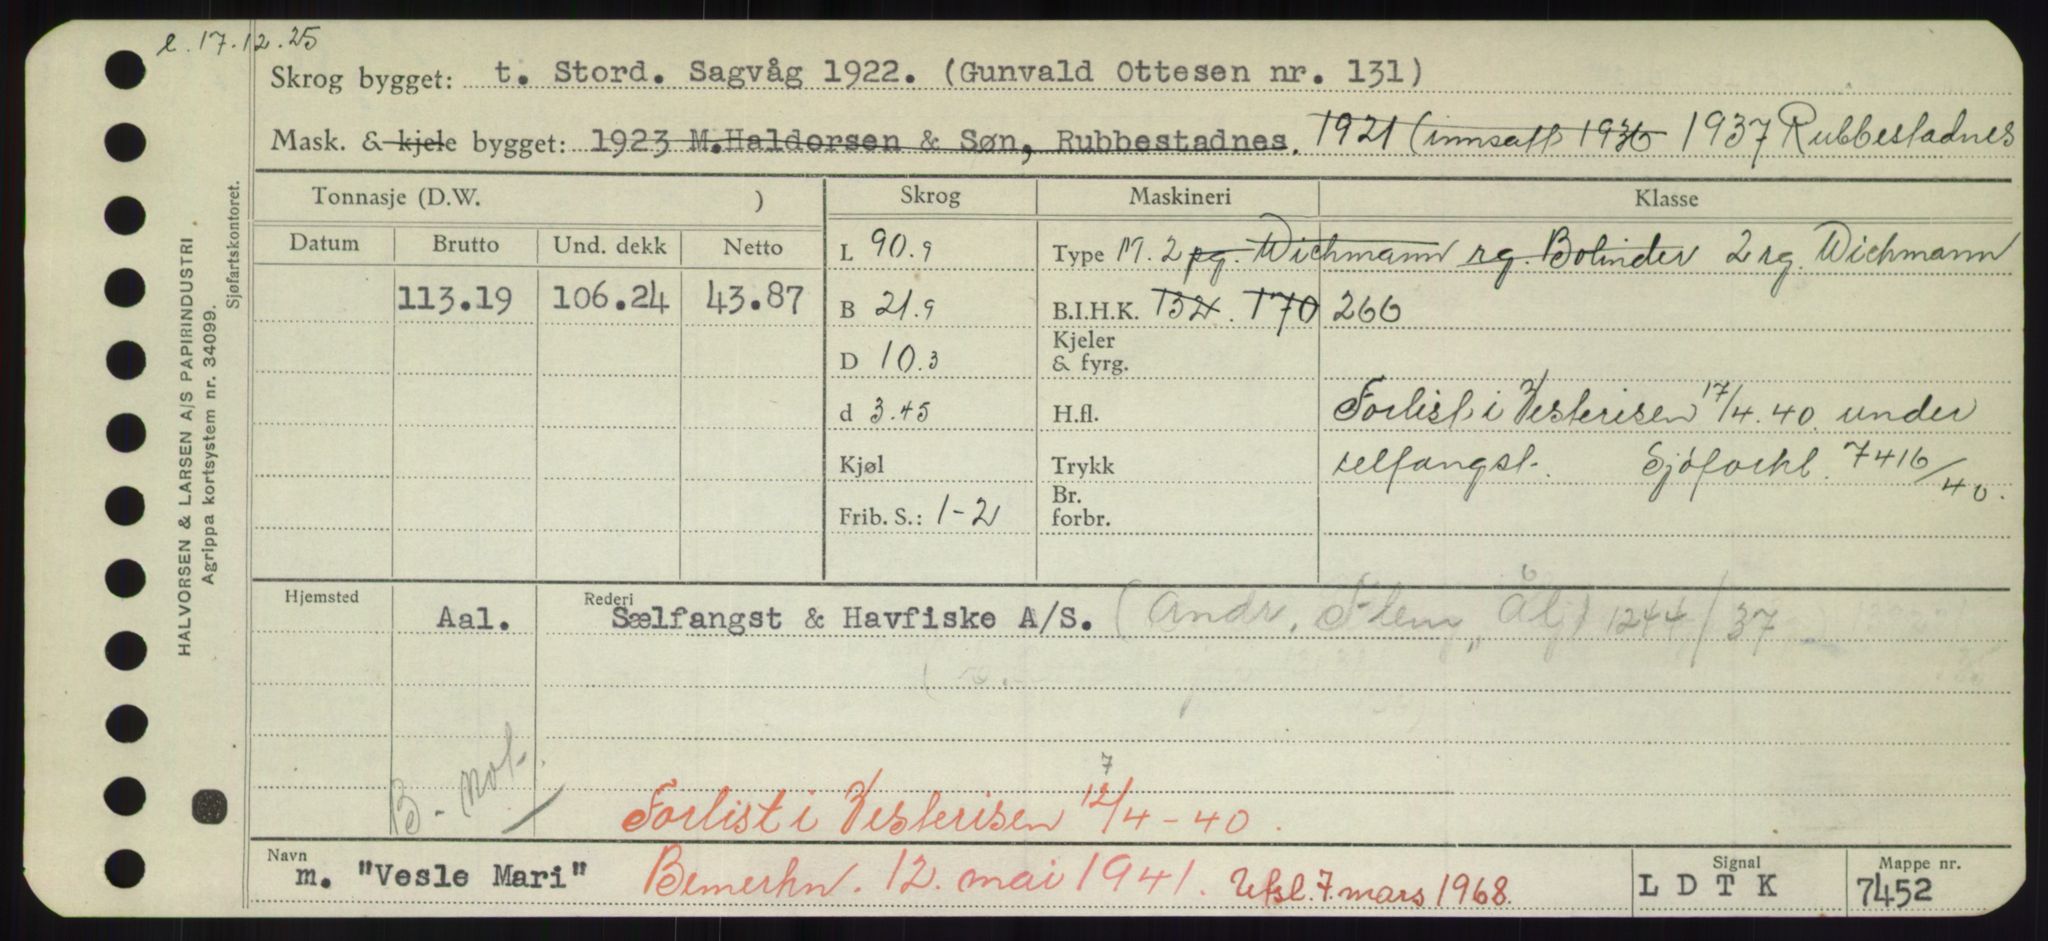 e. 17.12.25
Skrog bygget: t. Stord. Sagvåg 1922. (Gunvald Ottesen nr. 131)
Mask. & kjele bygget: 1923 M.Haldorsen & Søn, Rubbestadnes. 1921 (innsatt 1936 1937 Rubbestadnes
Tonnasje (D.W. ) Skrog Maskineri Klasse
Datum Brutto Und. dekk Netto L 90.9 Type M. 2 pg. Wichmann rg. Bolinder 2 rg. Wichmann
113.19 106.24 43.87 B 21.9 B.I.H.K. 132. 170 266
D 10.3 Kjeler & fyrg.
d 3.45 H.fl. Forlist i Vesterisen 17/4.40. under
Kjøl Trykk selfangst. Sjøforkl. 7416/40.
Frib. S.: 1-2 Br. forbr.
Hjemsted Aal. Rederi Sælfangst & Havfiske A/S. (Andr. Flem, Ål) 1244/37
B-not.
Forlist i Vesterisen 12/4-40.
7
Navn m. "Vesle Mari" Bemerkn. 12. mai 1941. Utsl. 7. mars 1968. Signal LDTK Mappe nr. 7452
HALVORSEN & LARSEN A/S PAPIRINDUSTRI
Agrippa kortsystem nr. 34099.
Sjøfartskontoret.